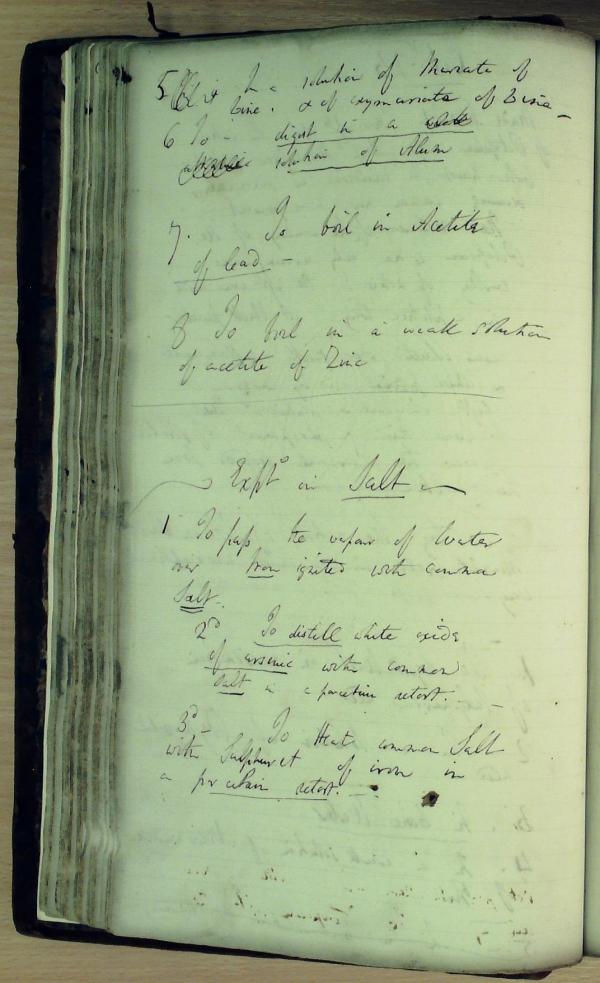 5 in a solution of Muriate of
Lime. & of oxymuriate of Lime –
6 To – digest in a
solution of Alum
7. To boil in Acetite
of lead –
8 To boil in a weak solution
of acetite of Zinc
Expts on Salt
1 To pass the vapour of Water
over Iron ignited with common
Salt.
2d To distill white oxide
of arsenic with common
salt in a porcelain retort. –
3d – To Heat common Salt
with Sulphuret of iron in
a porcelain retort. –